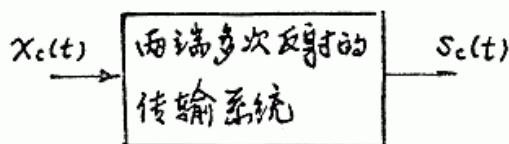 x_c(t)
两端多次反射的
传输系统
s_c(t)